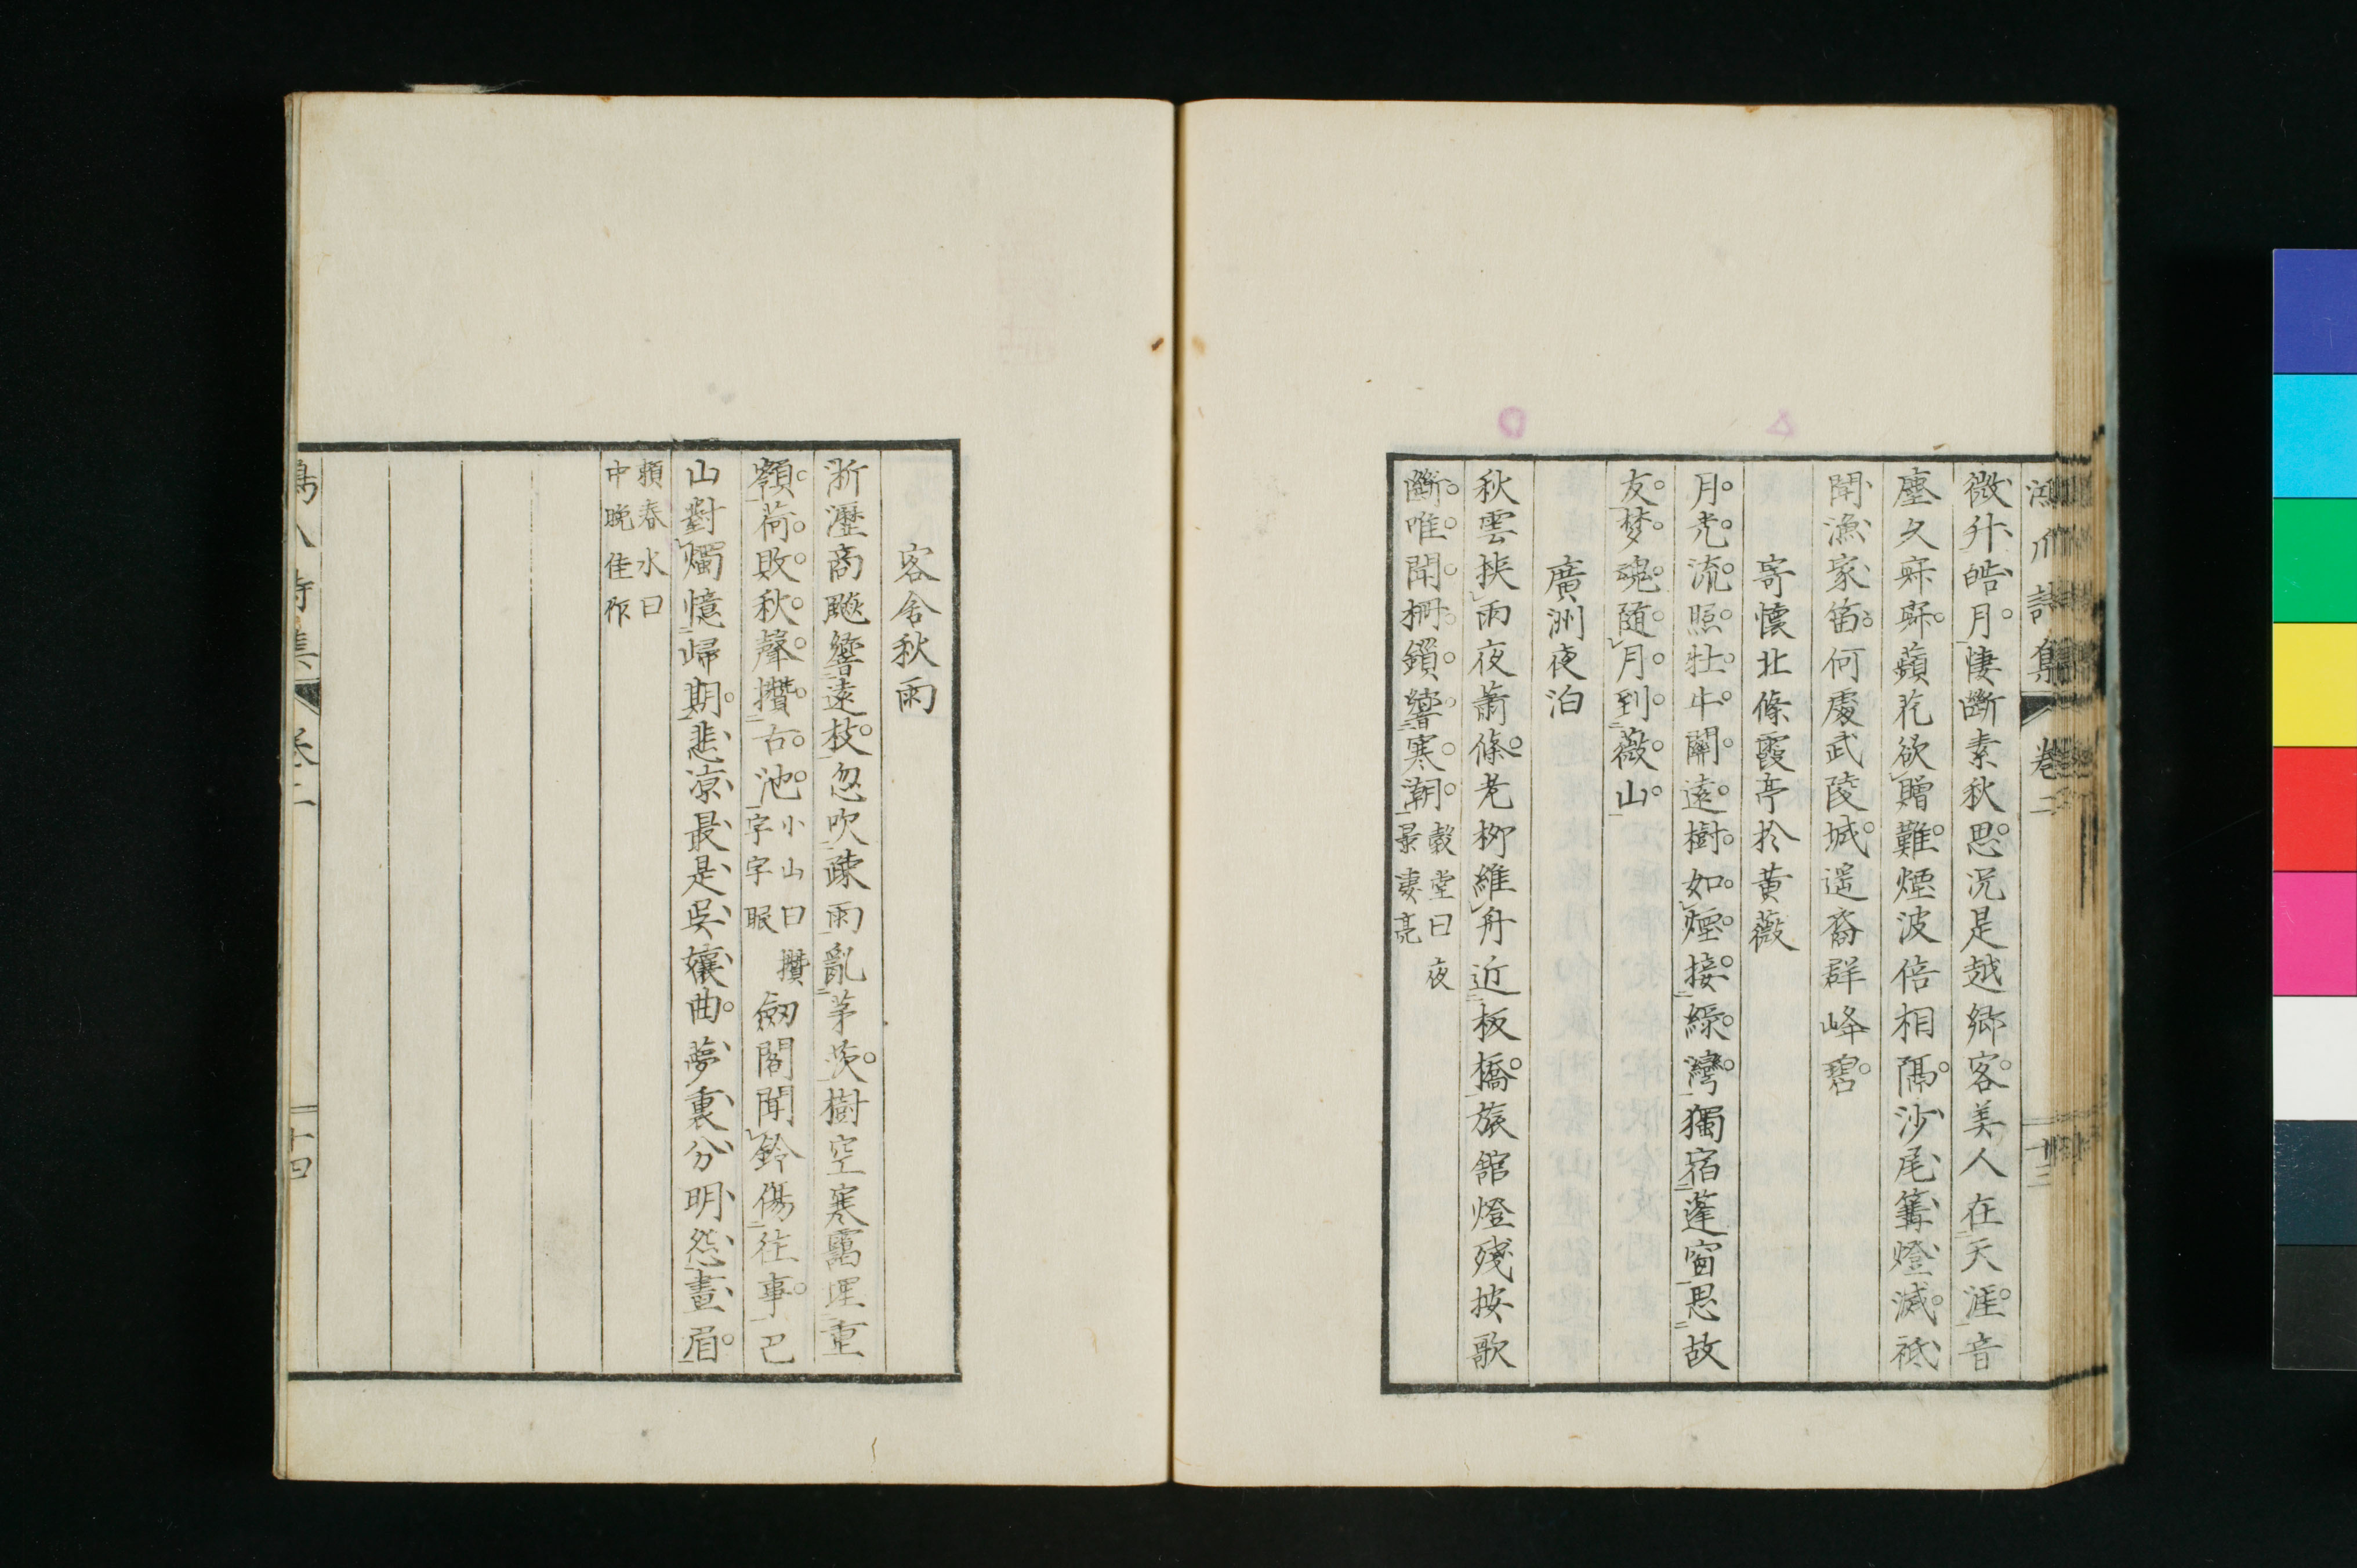 鴻爪詩集 卷二 十三
微升皓月悽斷素秋思況是越鄉客美人在天涯音
塵久寂寂蘋花欲贈難煙波倍相隔沙尾篝燈滅祇
聞漁家笛何處武陵城遥裔群峰碧
寄懷北條霞亭於黃薇
月光流照牡牛關遠樹如煙接綠灣獨宿蓬窗思故
友梦魂随月到薇山
廣洲夜泊
秋雲挾雨夜蕭條老柳維舟近板橋旅館燈殘按歌
斷唯聞柵鎖響寒潮
穀堂曰夜
景凄亮
客舍秋雨
淅瀝商飈響遠枝忽吹疎雨亂茅茨樹空寒靄埋重
嶺荷敗秋聲攢古池
小山曰攢
字字眼
劔閣聞鈴傷往事巴
山對燭憶歸期悲凉最是吳孃曲夢裏分明怨畫眉
賴春水曰
中晚佳作
卷二 十四